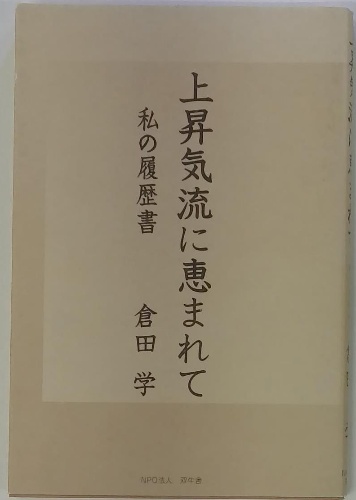 上昇気流に恵まれて
私の履歴書
倉田 学
NPO法人